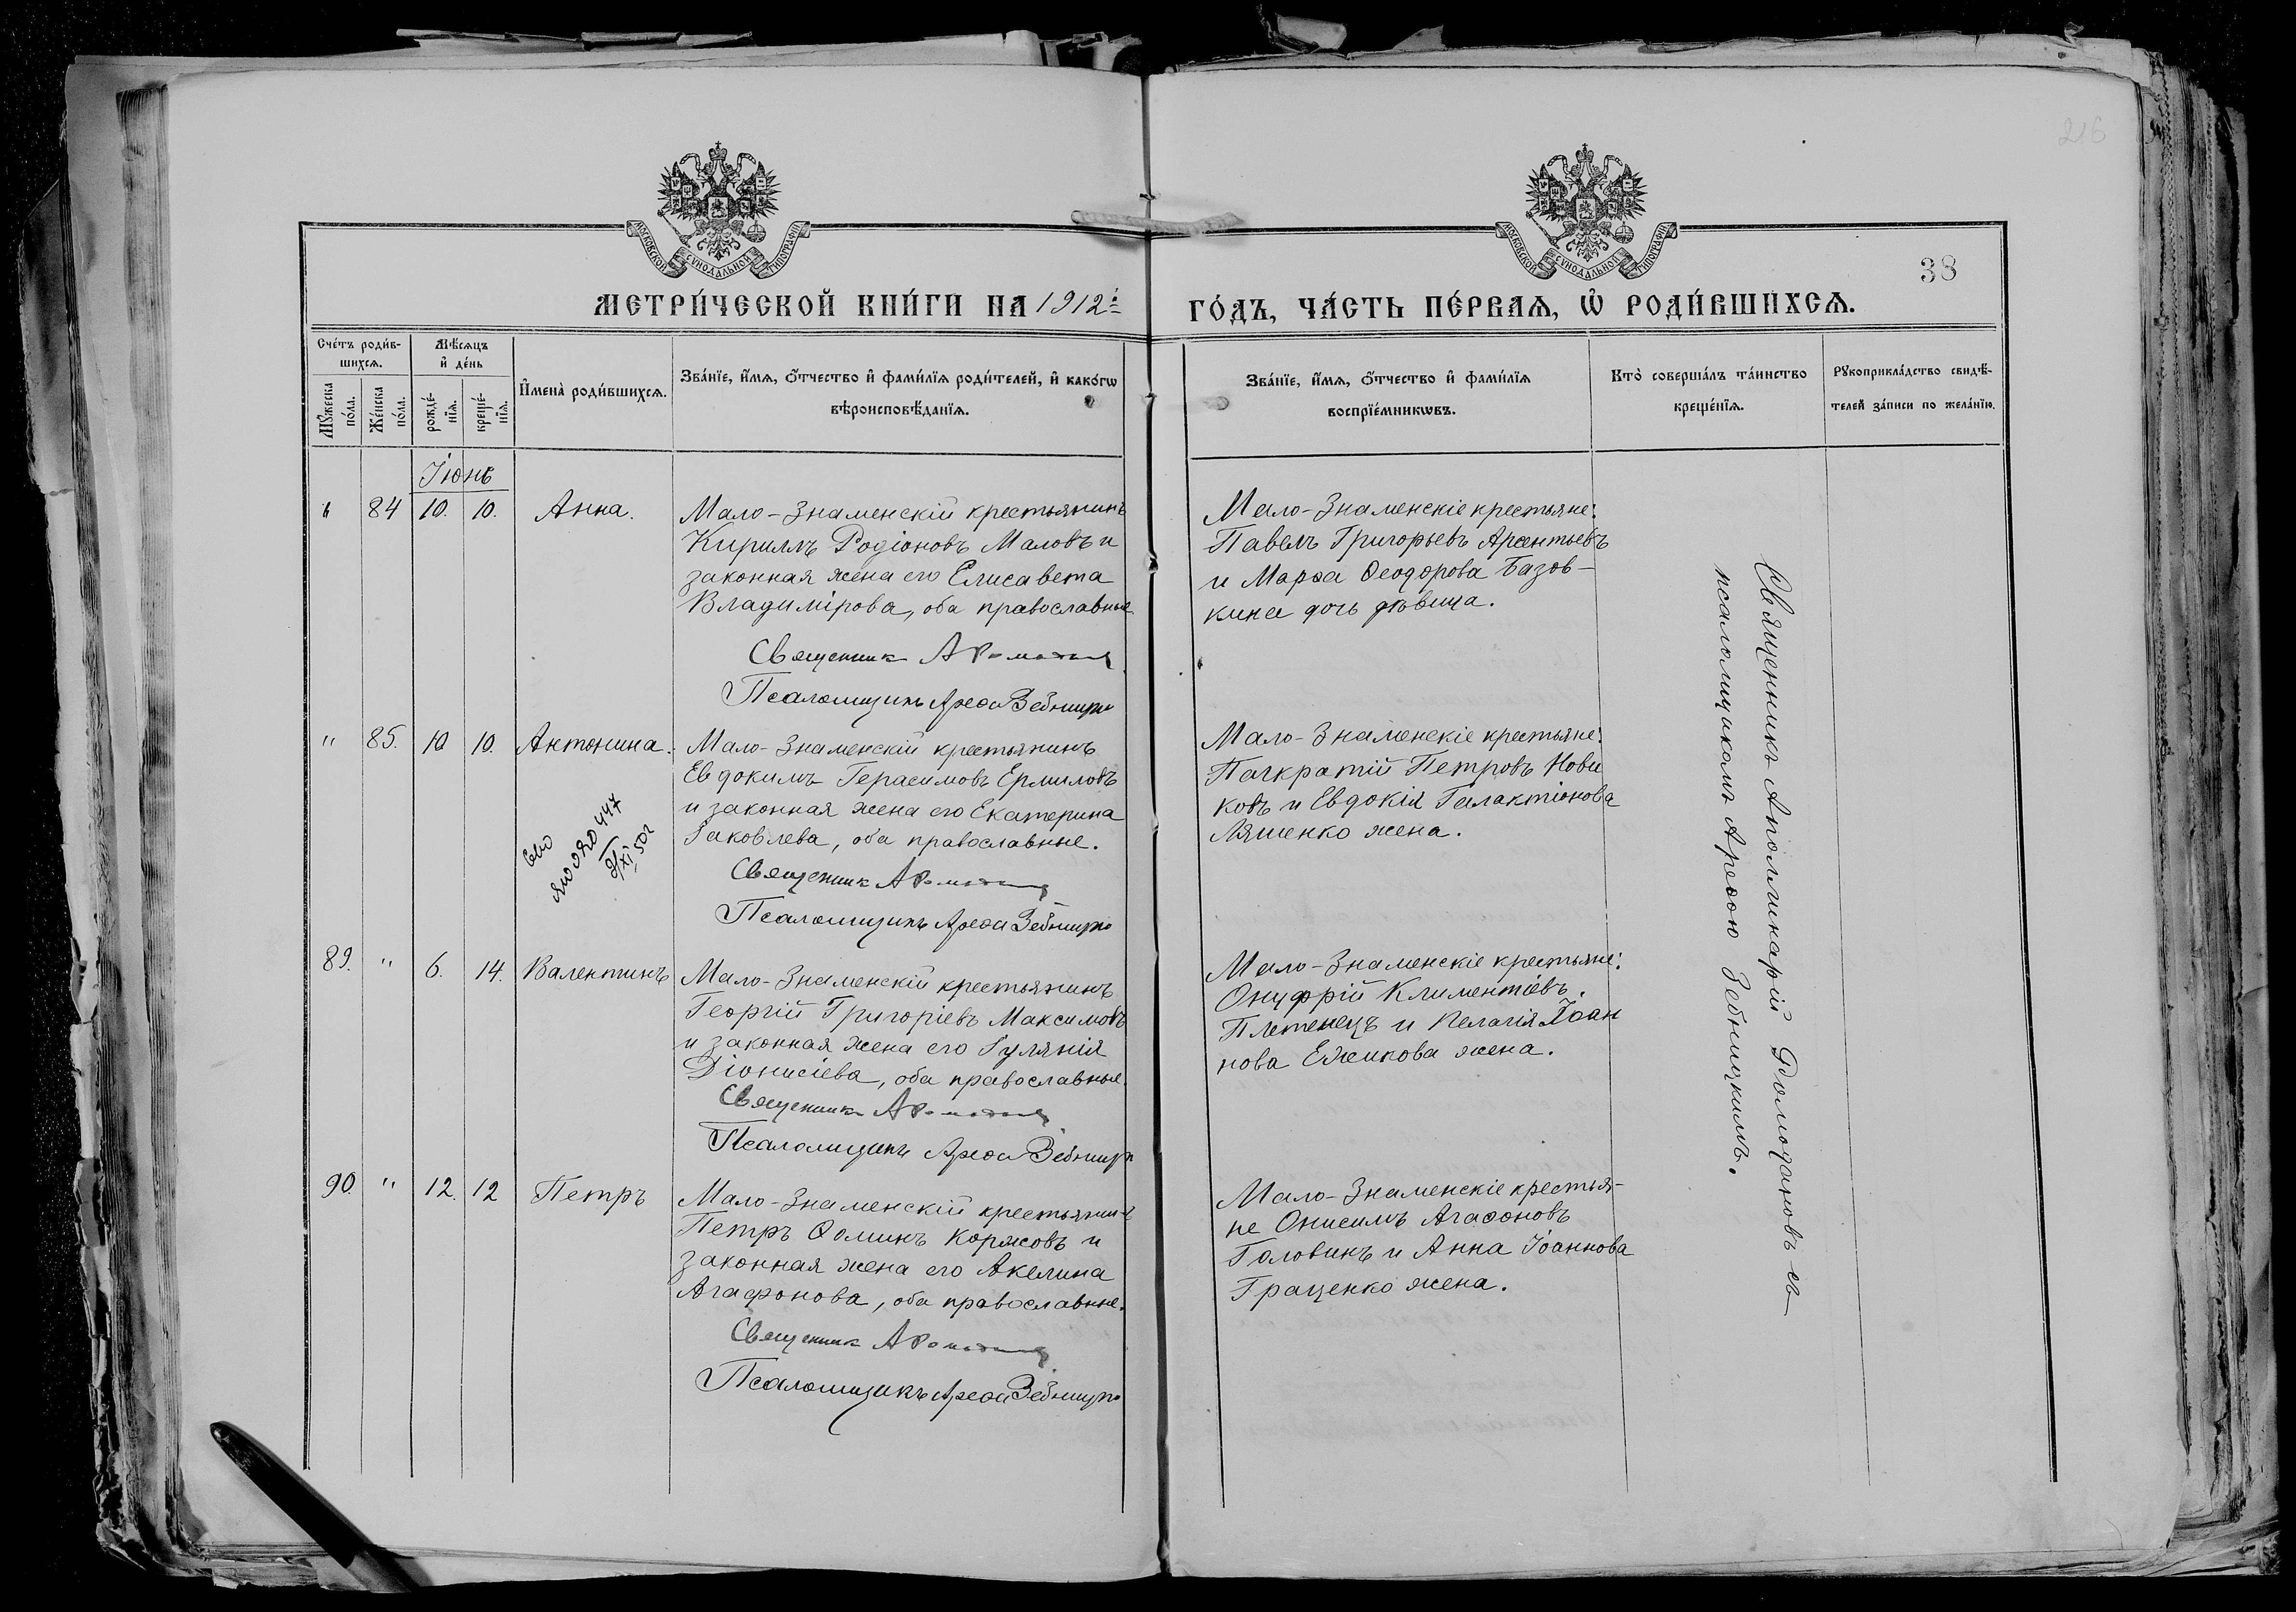 216
МОСКОВСКОЙ СѴНОДАЛЬНОЙ ТИПОГРАФІИ
МОСКОВСКОЙ СѴНОДАЛЬНОЙ ТИПОГРАФІИ
38
МЕТРИ́ЧЕСКОЙ КНИ́ГИ НА 1912й
ГО́ДЪ, ЧА́СТЬ ПЕ́РВАЯ, Ѡ҆ РОДИ́ВШИХСЯ.
Сче́тъ роди́в-
шихсѧ.
Мꙋ́жеска
по́ла.
Же́нска
по́ла.
Мѣ́сѧцъ
и҆ де́нь
рожде́-
нїѧ.
креще́-
нїѧ.
И҆мена̀ роди́вшихсѧ.
Зва́нїе, и҆́мѧ, ѻ҆́тчество и҆ фами́лїѧ роди́телей, и҆ како́гѡ
вѣроисповѣ́данїѧ.
Зва́нїе, и҆́мѧ, ѻ҆́тчество и҆ фами́лїѧ
воспрїе́мникѡвъ.
Кто̀ соверша́лъ та́инство
креще́нїѧ.
Рꙋкоприкла́дство свидѣ́-
телей за́писи по жела́нїю.
Іюнь
" 84 10. 10. Анна.
Мало-Знаменскій крестьянинъ
Кириллъ Родіоновъ Маловъ и
законная жена его Елисавета
Владимірова, оба православные.
Священникъ
Псаломщикъ Арефа Зебницкій
Мало-Знаменскіе крестьяне:
Павелъ Григорьевъ Арсентьевъ
и Марѳа Ѳеодорова Базов-
кина дочь дѣвица.
" 85. 10 10. Антонина.
Мало-Знаменскій крестьянинъ
Евдокимъ Герасимовъ Ермиловъ
и законная жена его Екатерина
Іаковлева, оба православные.
Священникъ
Псаломщикъ Арефа Зебницкій
447
XI 50г
Мало-Знаменскіе крестьяне:
Панкратій Петровъ Нови
ковъ и Евдокія Галактіонова
Ляшенко жена.
89. " 6. 14. Валентинъ
Мало-Знаменскій крестьянинъ
Георгій Григоріевъ Максимовъ
и законная жена его Іуліанія
Діонисіева, оба православные.
Священникъ
Псаломщикъ Арефа Зебницкій
Мало-Знаменскіе крестьяне:
Онуфрій Климентіевъ
Плетенецъ и Пелагія Іоан
нова Ежикова жена.
90. " 12. 12 Петръ
Мало-Знаменскій крестьянинъ
Петръ Ѳоминъ Коржовъ и
законная жена его Акелина
Агафонова, оба православные.
Священникъ
Псаломщикъ Арефа Зебницкій
Мало-Знаменскіе крестья-
не Онисимъ Агаѳоновъ
Головинъ и Анна Іоаннова
Граценко жена.
Священникъ Аполлинарій Ромодановъ съ
псаломщикомъ Арефою Зебницкимъ.